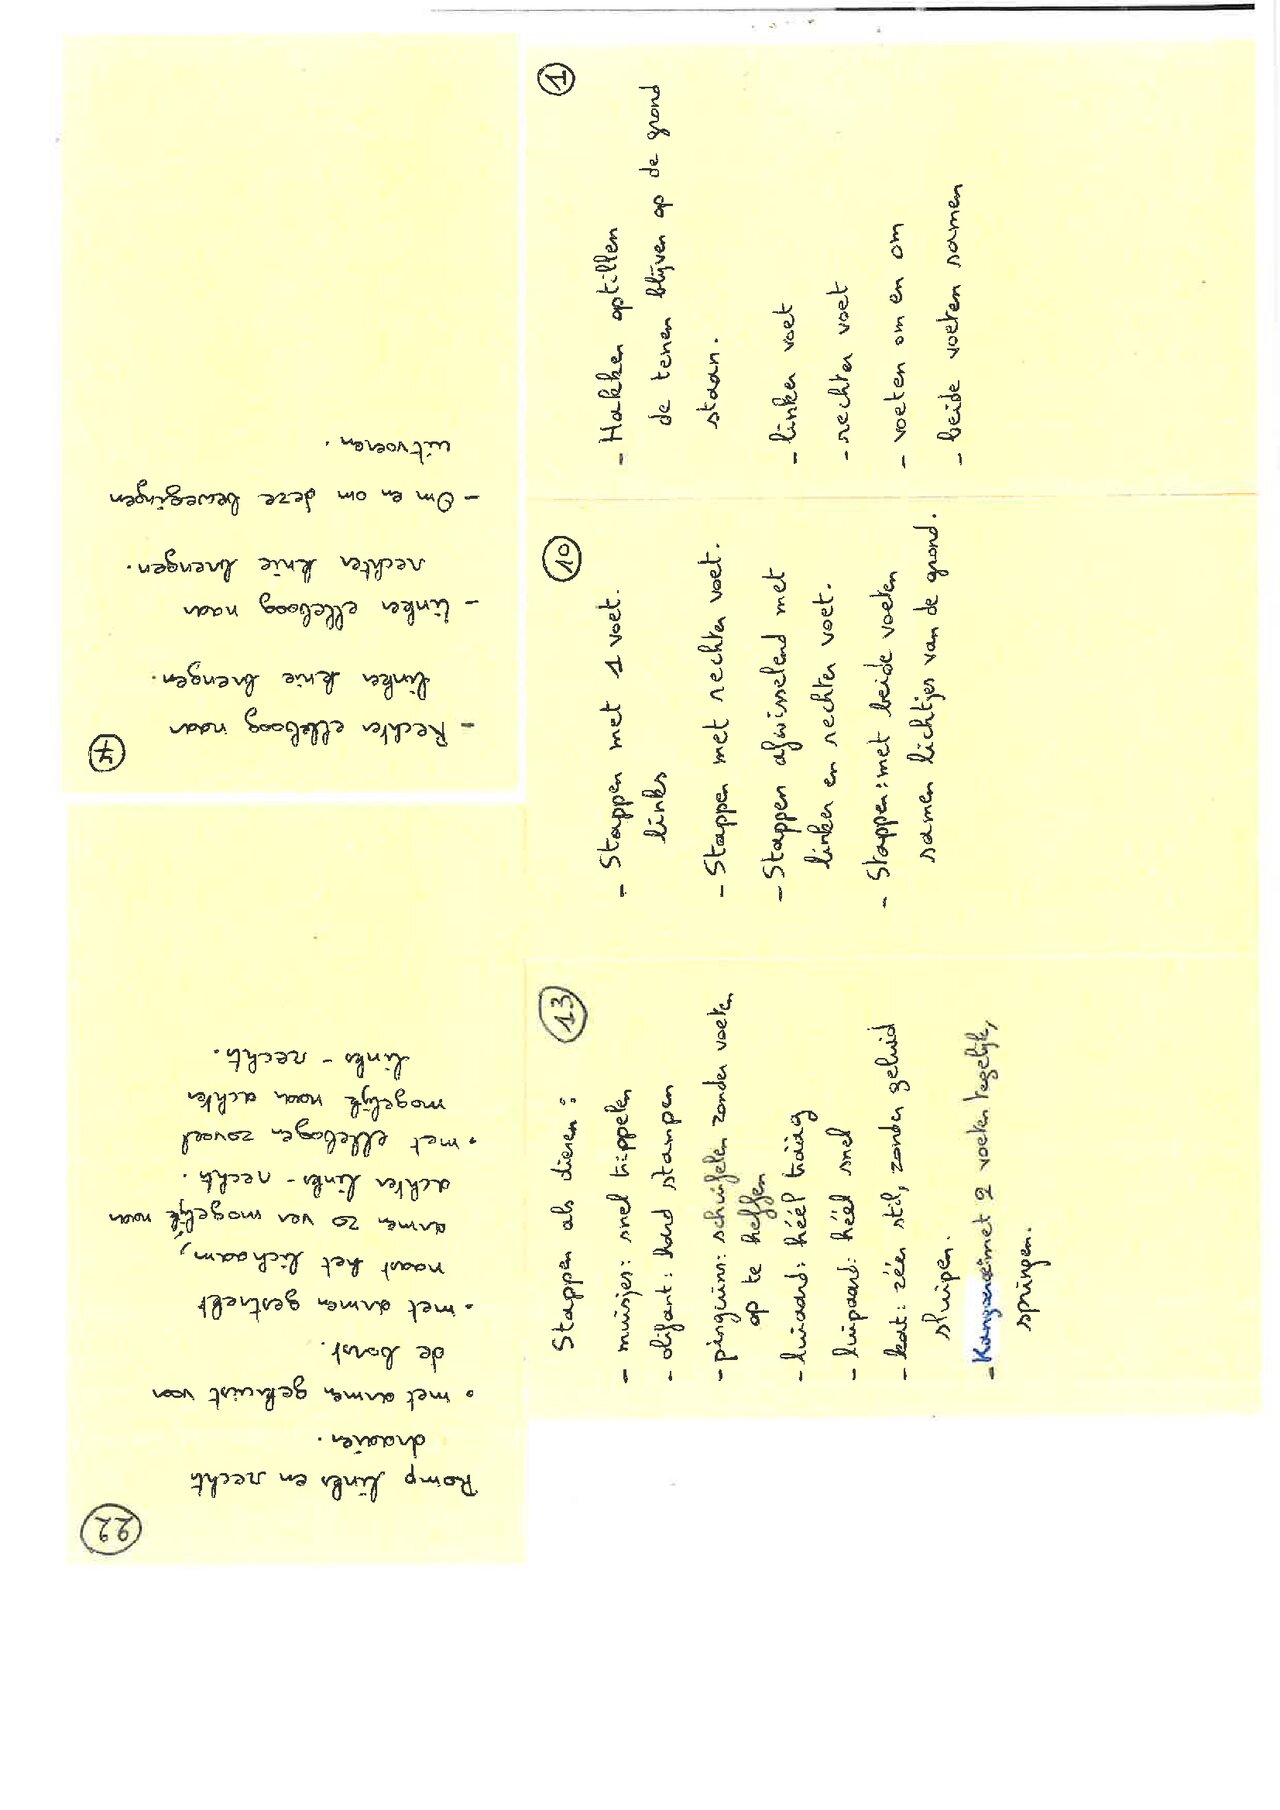 1
- Hakken optillen
de tenen blijven op de grond
staan.
- linker voet
- rechter voet
- voeten om en om
- beide voeten samen
10
- Stappen met 1 voet.
links
- Stappen met rechter voet.
- Stappen afwisselend met
linker en rechter voet.
- Stappen: met beide voeten
samen lichtjes van de grond.
13
Stappen als dieren:
- muisjes: snel trippelen
- olifant: hard stampen
- pinguins: schuifelen zonder voeten
op te heffen
- luiaard: héél traag
- luipaard: héél snel
- kat: zéér stil, zonder geluid
sluipen.
- Kangoeroe: met 2 voeten tegelijk,
springen.
7
- Rechter elleboog naar
linker knie brengen.
- linker elleboog naar
rechter knie brengen.
- Om en om deze bewegingen
uitvoeren.
22
Romp links en rechts
draaien.
• met armen gekruist voor
de borst.
• met armen gestrekt
naast het lichaam,
armen zo ver mogelijk naar
achter links - rechts.
• met ellebogen zoveel
mogelijk naar achter
links - rechts.